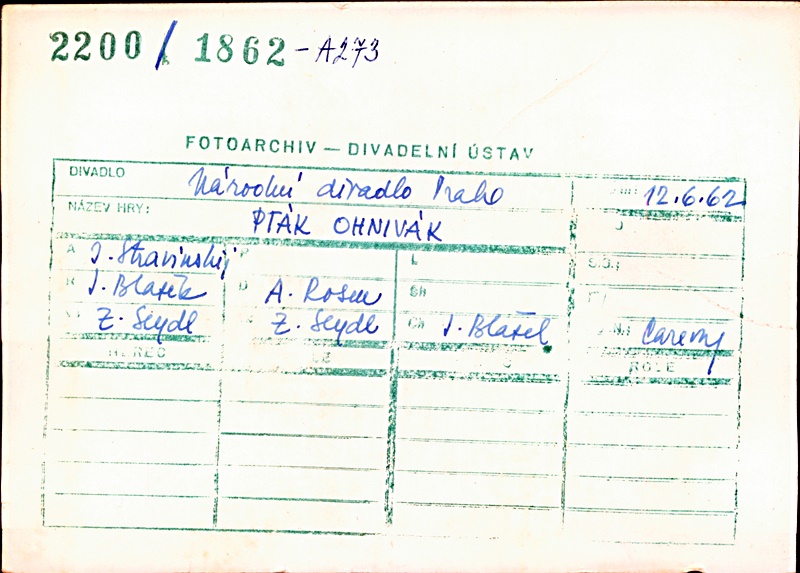 2200/1862-A273
FOTOARCHIV — DIVADELNÍ ÚSTAV
DIVADLO Národní divadlo Praha 12.6.62
NÁZEV HRY: PTÁK OHNIVÁK
A J. Stravinskij P L
R J. Blažek D A. Rosen Sh
Z. Seydl Z. Seydl Ch J. Blažek
HEREC ROLE